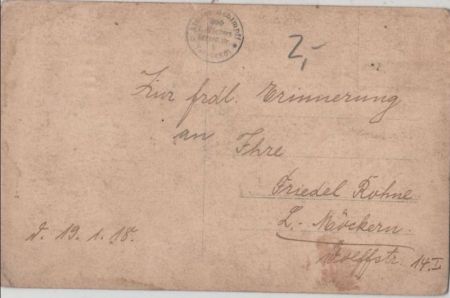 2,-
Zur frdl. Erinnerung
an Ihre
Friedel Rohne
L.-Möckern.
Wolffstr. 14 I
d. 19.1.18.